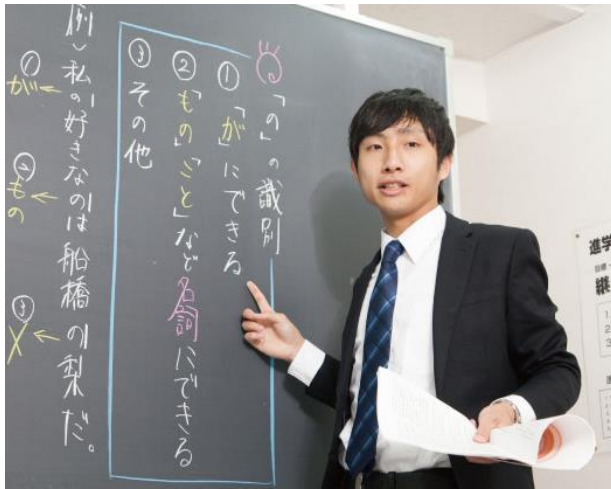 「の」の識別
①「が」にできる
②「もの」「こと」など名詞にできる
③その他
例)私の好きなのは船橋の梨だ。
①が←
②もの←
③X←
進学
継
1
2
3